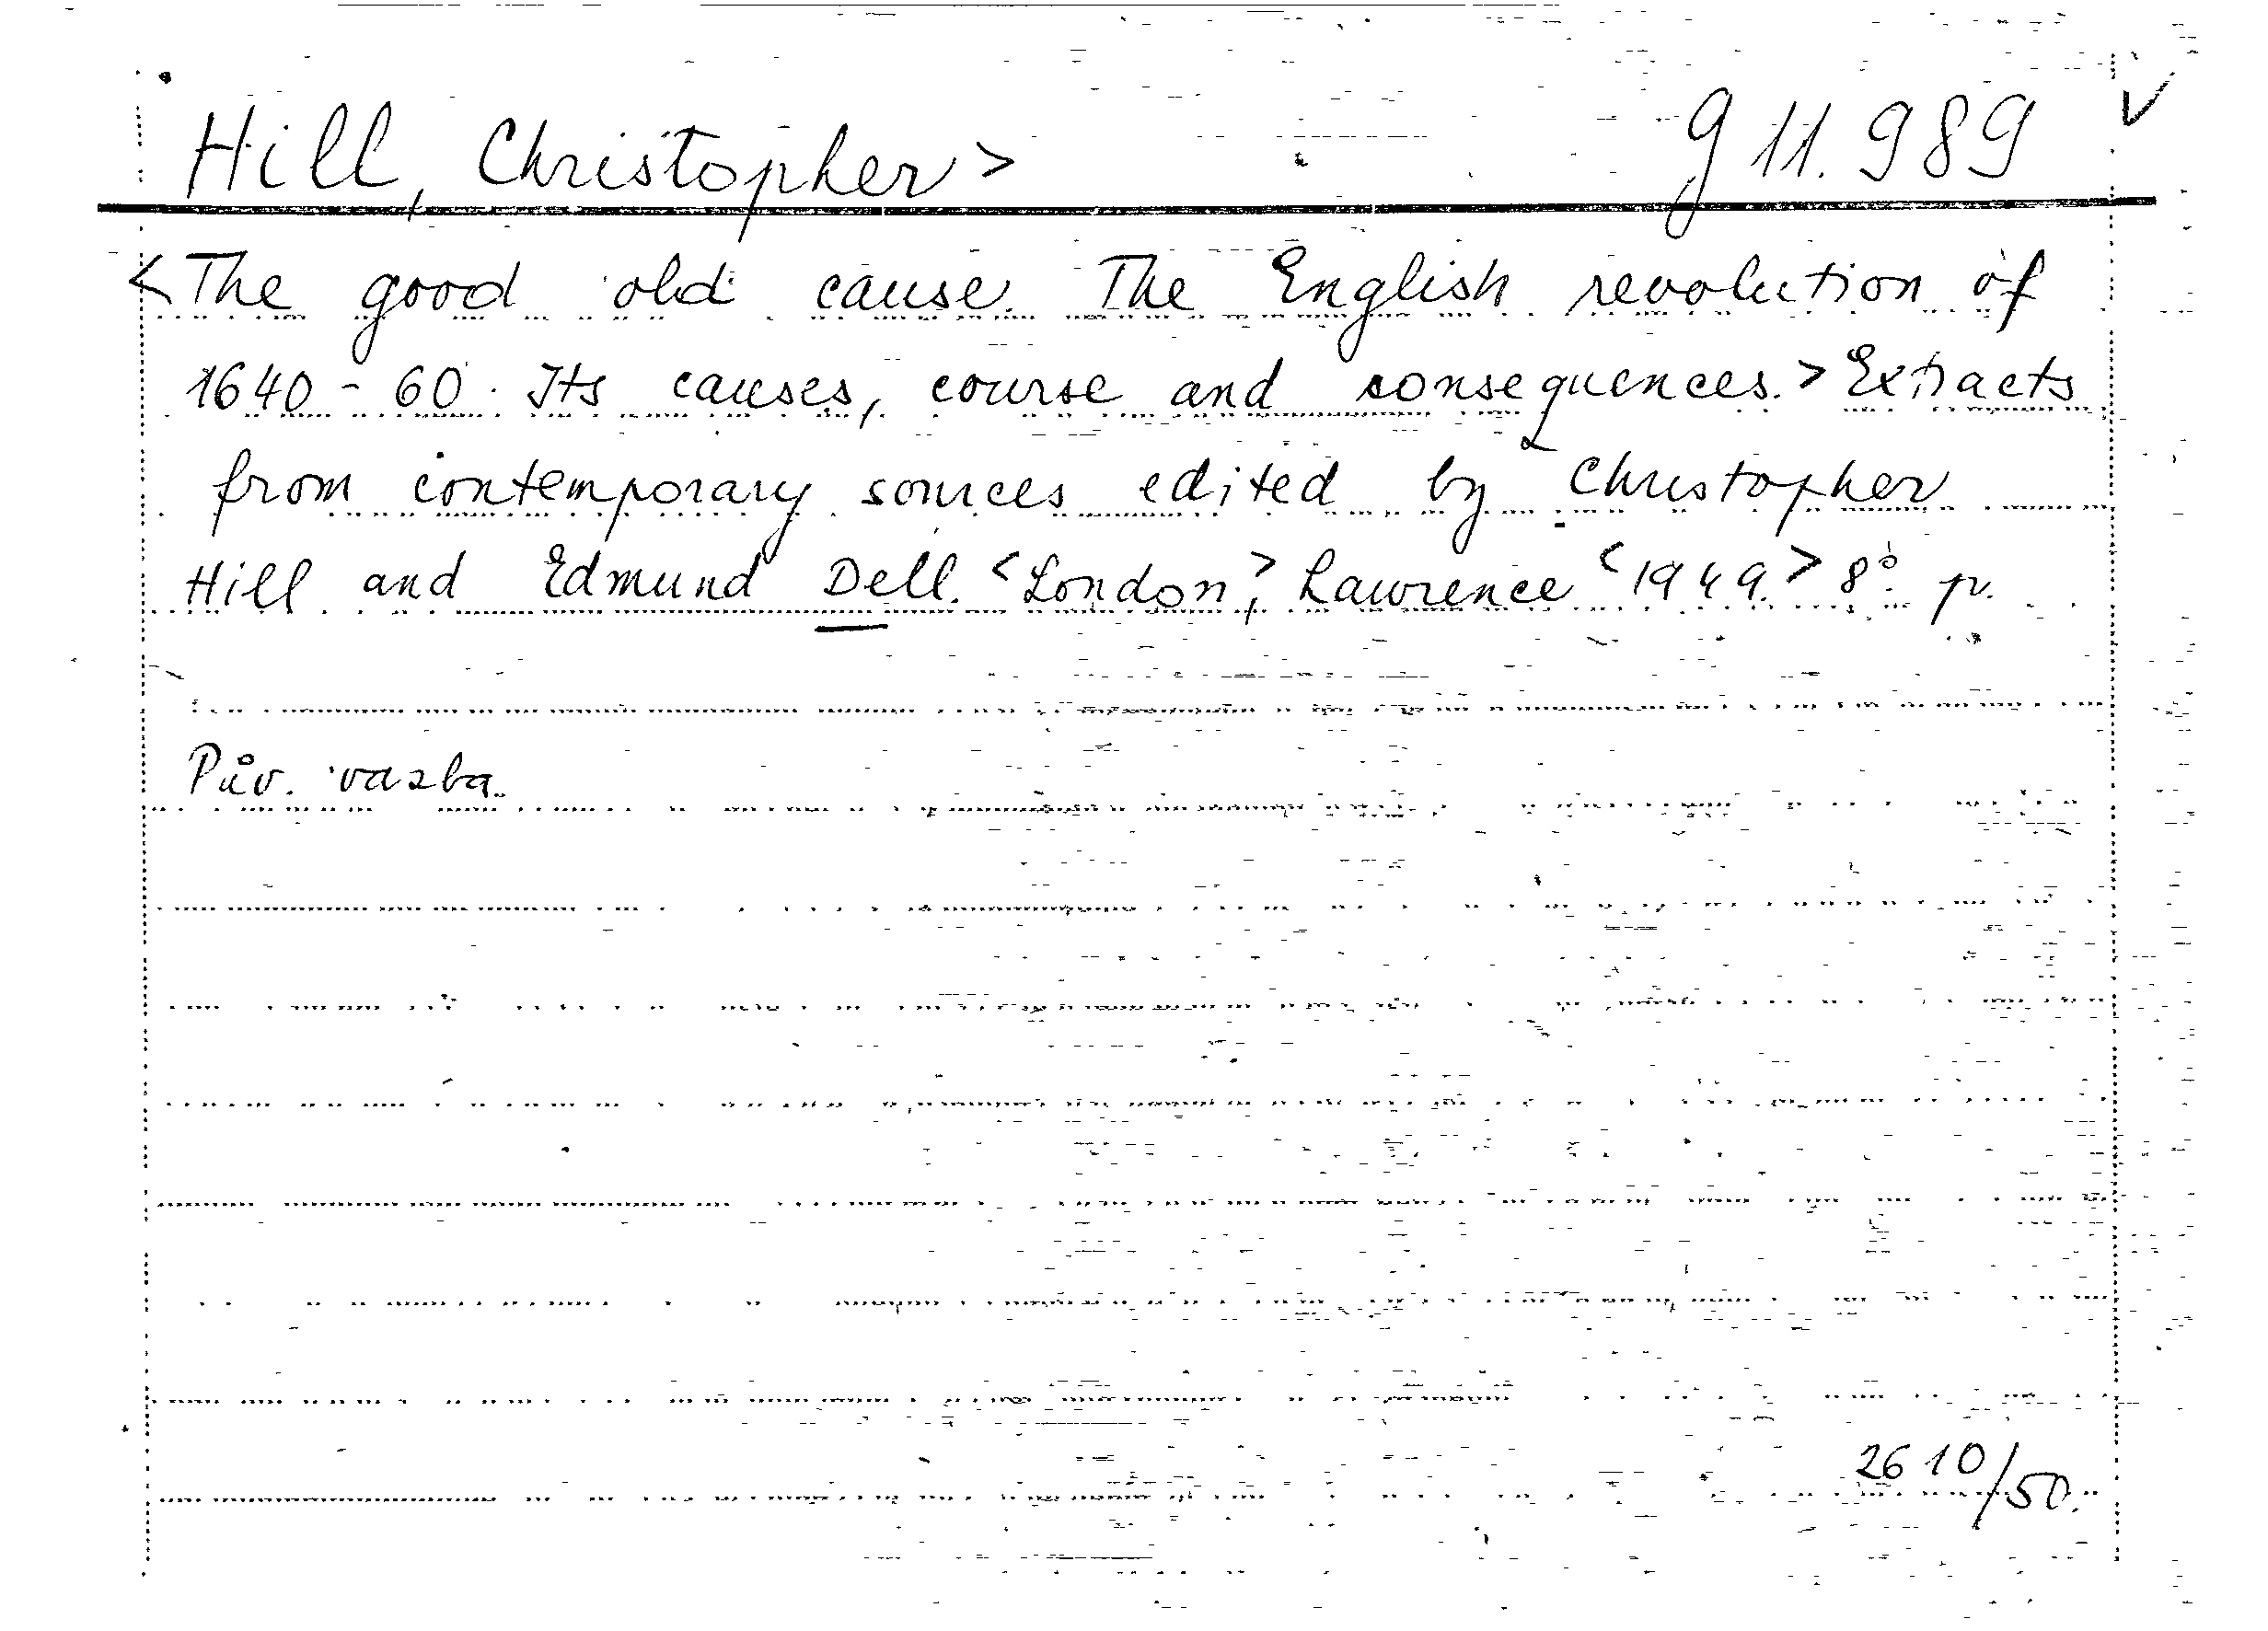 Hill, Christopher > g 11.989 ✓
<The good old cause. The English revolution of
1640-60. Its causes, course and consequences.> Extracts
from contemporary sources edited by Christopher
Hill and Edmund Dell. <London,> Lawrence <1949.> 8° p.
Pův. vazba.
2610/50.